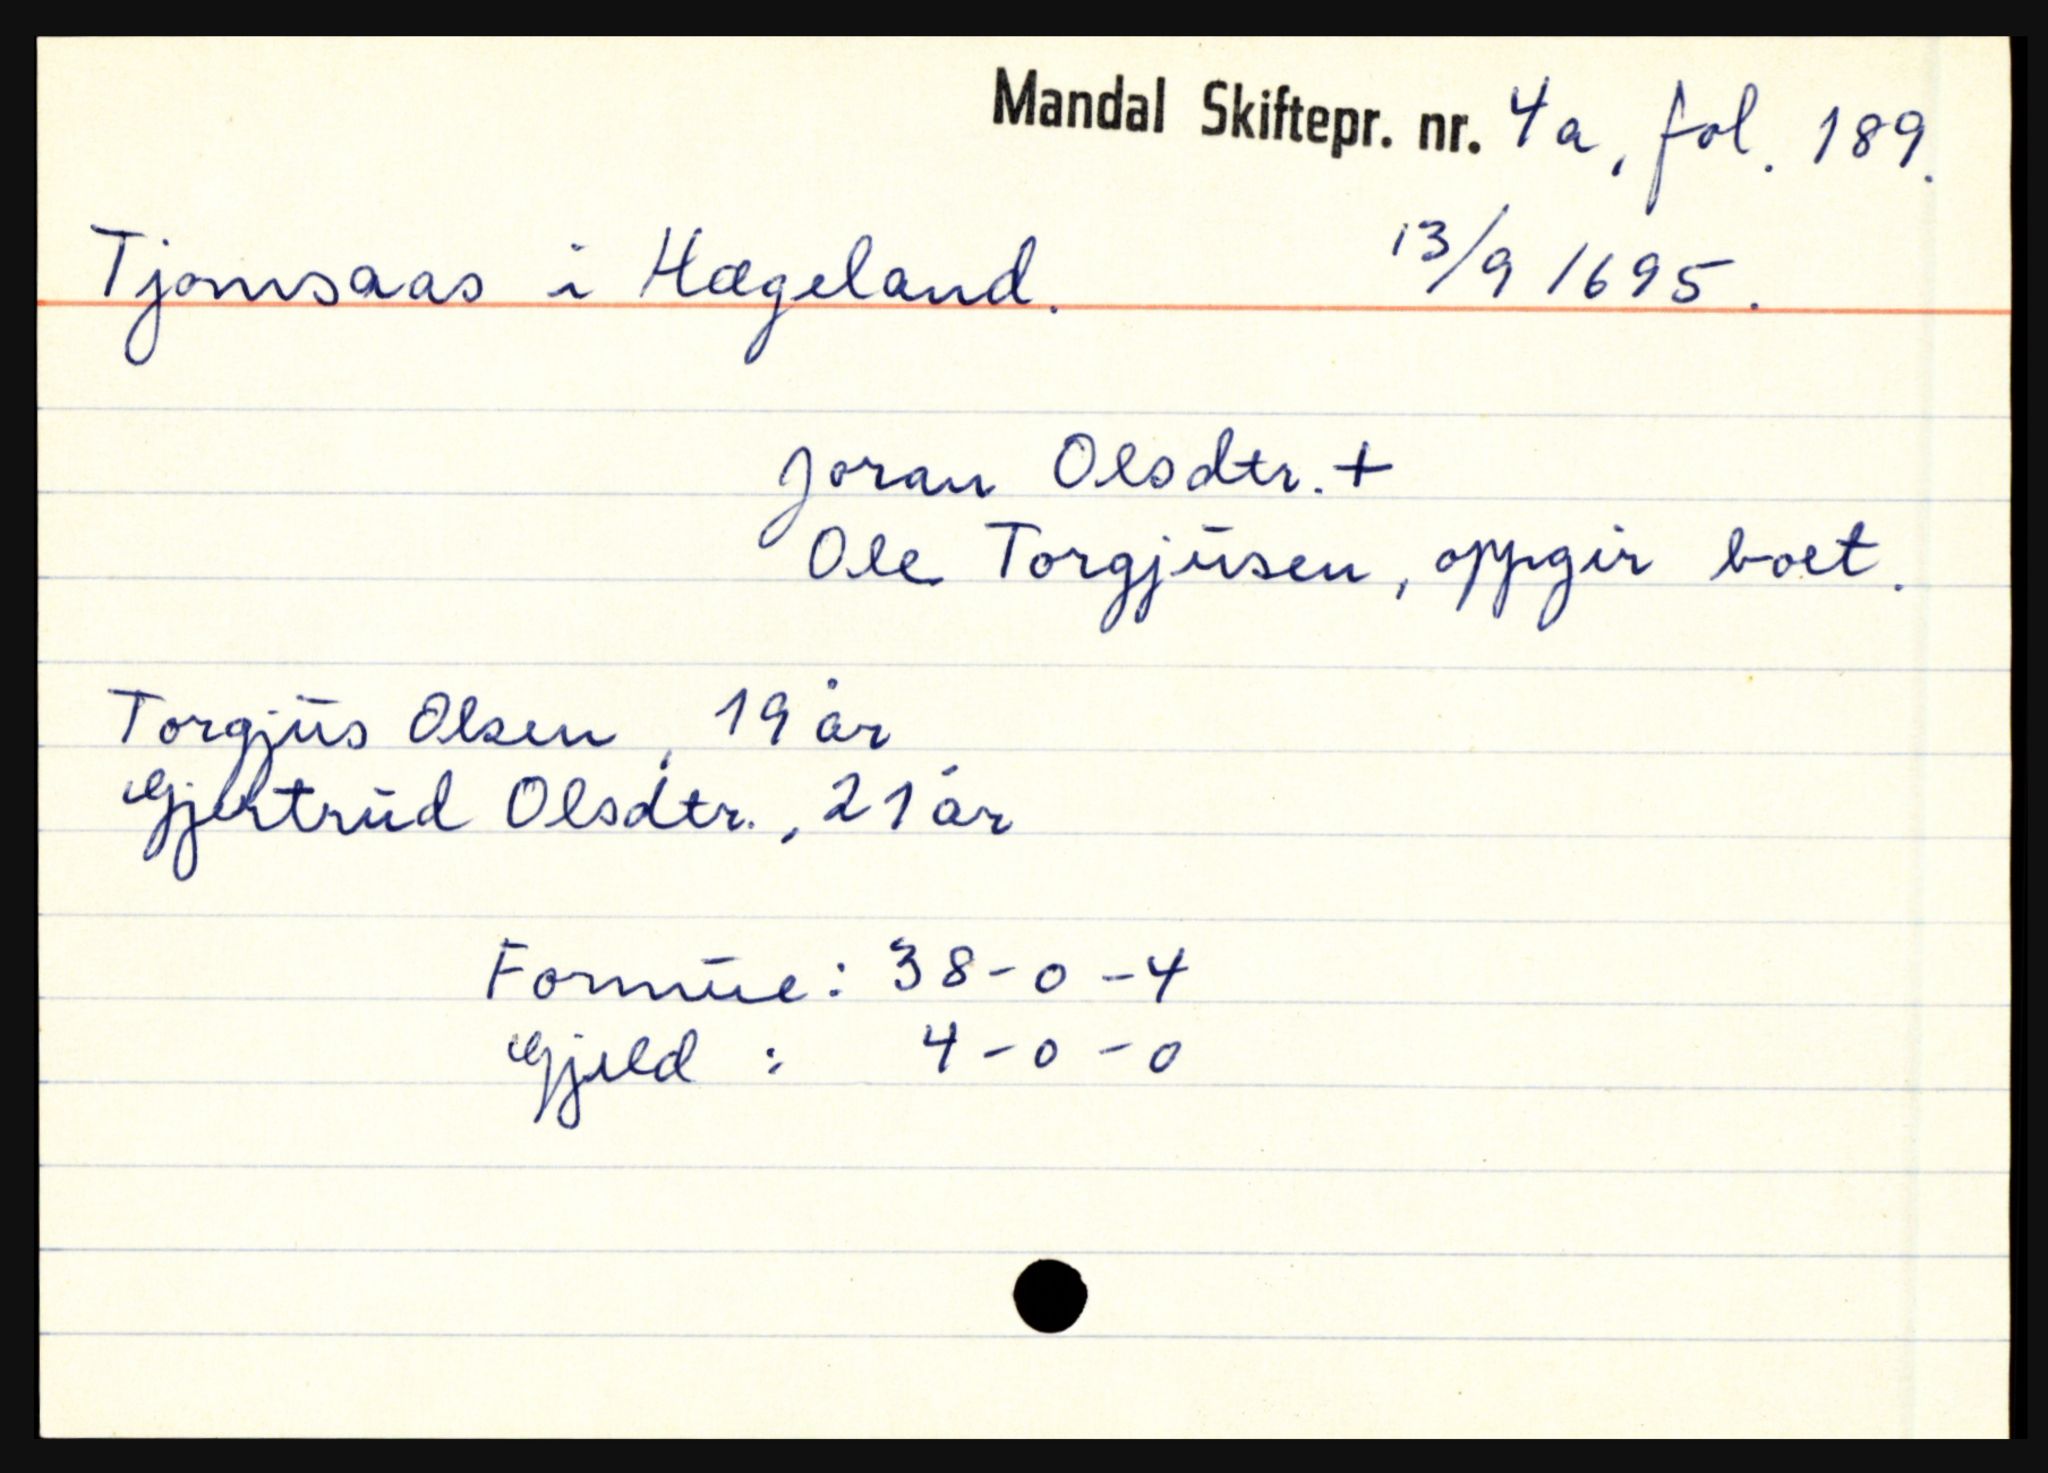 Mandal Skiftepr. nr. 4a, fol. 189.
Tjomsaas i Hægeland. 13/9 1695.
Joran Olsdtr. +
Ole Torgjusen, oppgir boet.
Torgjus Olsen, 19 år
Gjertrud Olsdtr., 21 år
Formue: 38-0-4
Gjeld : 4-0-0